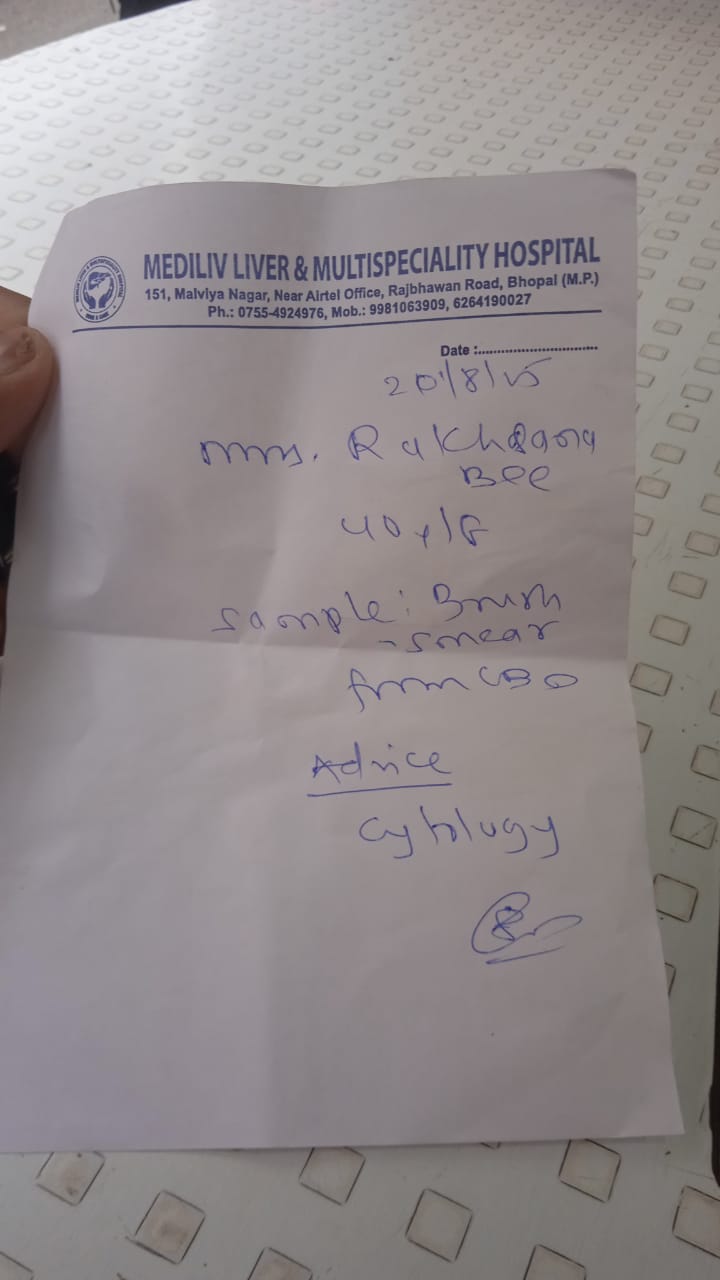 MEDILIV LIVER & MULTISPECIALITY HOSPITAL
151, Malviya Nagar, Near Airtel Office, Rajbhawan Road, Bhopal (M.P.)
Ph.: 0755-4924976, Mob.: 9981063909, 6264190027
Date :..............................
20/8/25
Mrs.
Bee
40y/F
Sample: Brush
-smear
from CBD
Advice
Cytology